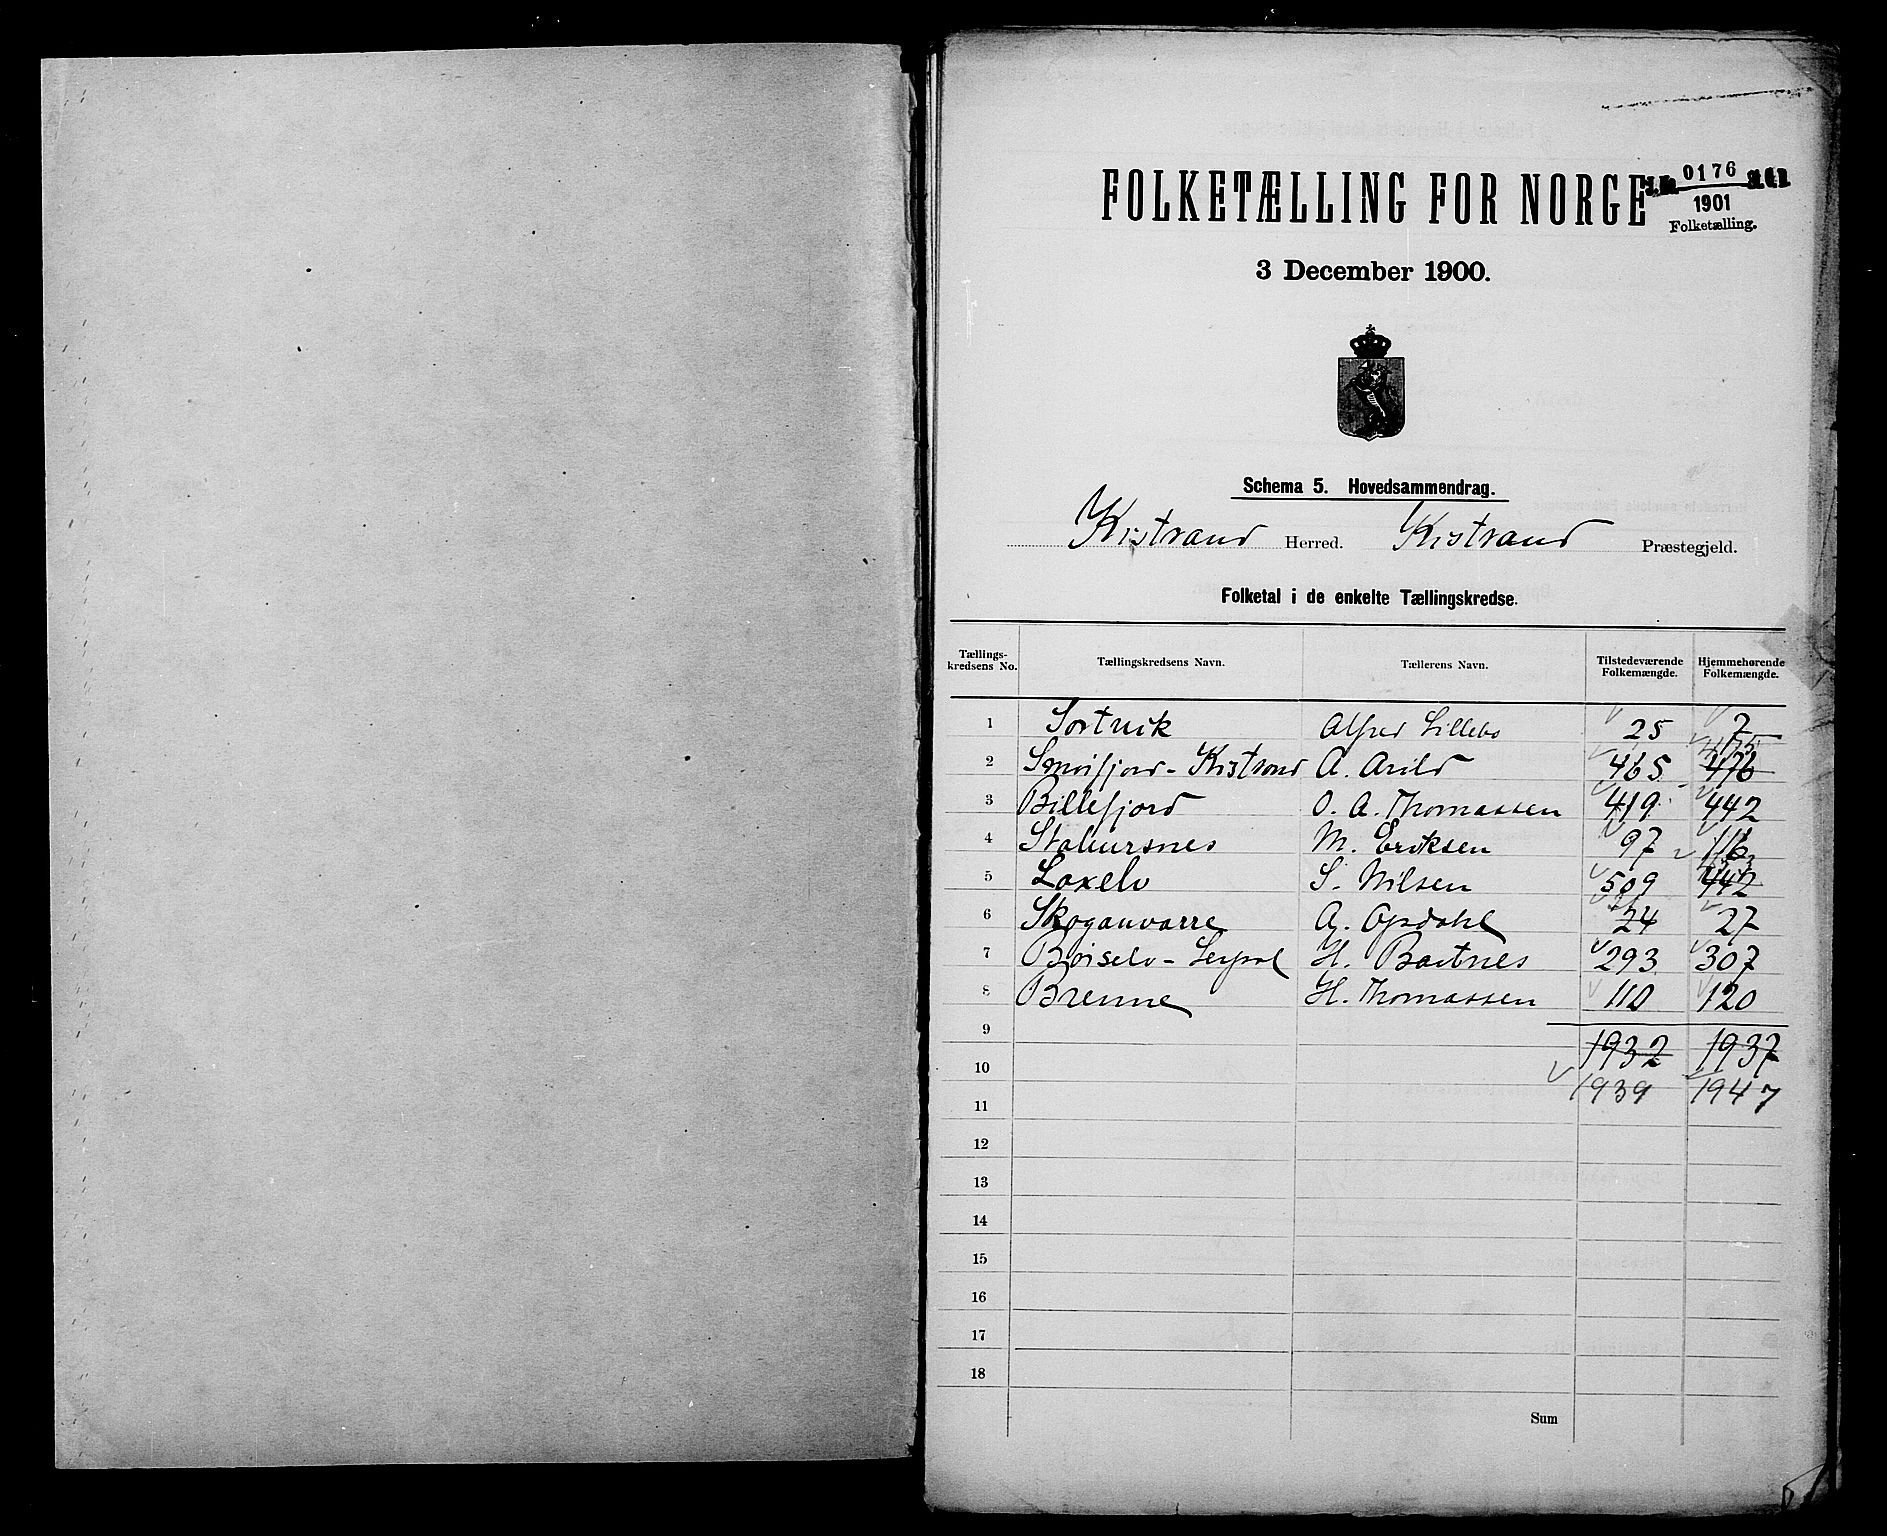 FOLKETÆLLING FOR NORGE
0176
1901
Folketælling.
3 December 1900.
Schema 5. Hovedsammendrag.
Kistrand Herred. Kistrand Præstegjeld.
Folketal i de enkelte Tællingskredse.
Tællingskredsens No. Tællingskredsens Navn. Tællerens Navn. Tilstedeværende Folkemængde. Hjemmehørende Folkemængde.
1 Sortvik Alfred Lillebo 25 7
2 Smørfjord - Kistrand A. Arild 465 476 475
3 Billefjord O. A. Thomassen 419 442
4 Stabursnes M. Eriksen 97 116
5 Laxelv S. Nilsen 509 442
6 Skoganvarre A. Opdahl 24 27
7 Børselv - H. Bartnes 293 307
8 Brenne H. Thomassen 110 120
9
1932 1937
10
1939 1947
11
12
13
14
15
16
17
18
Sum